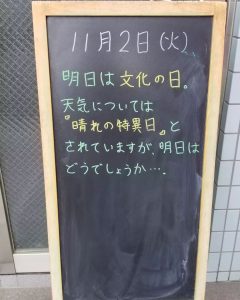 11月2日(火)
明日は文化の日。
天気については
『晴れの特異日』と
されていますが、明日は
どうでしょうか….